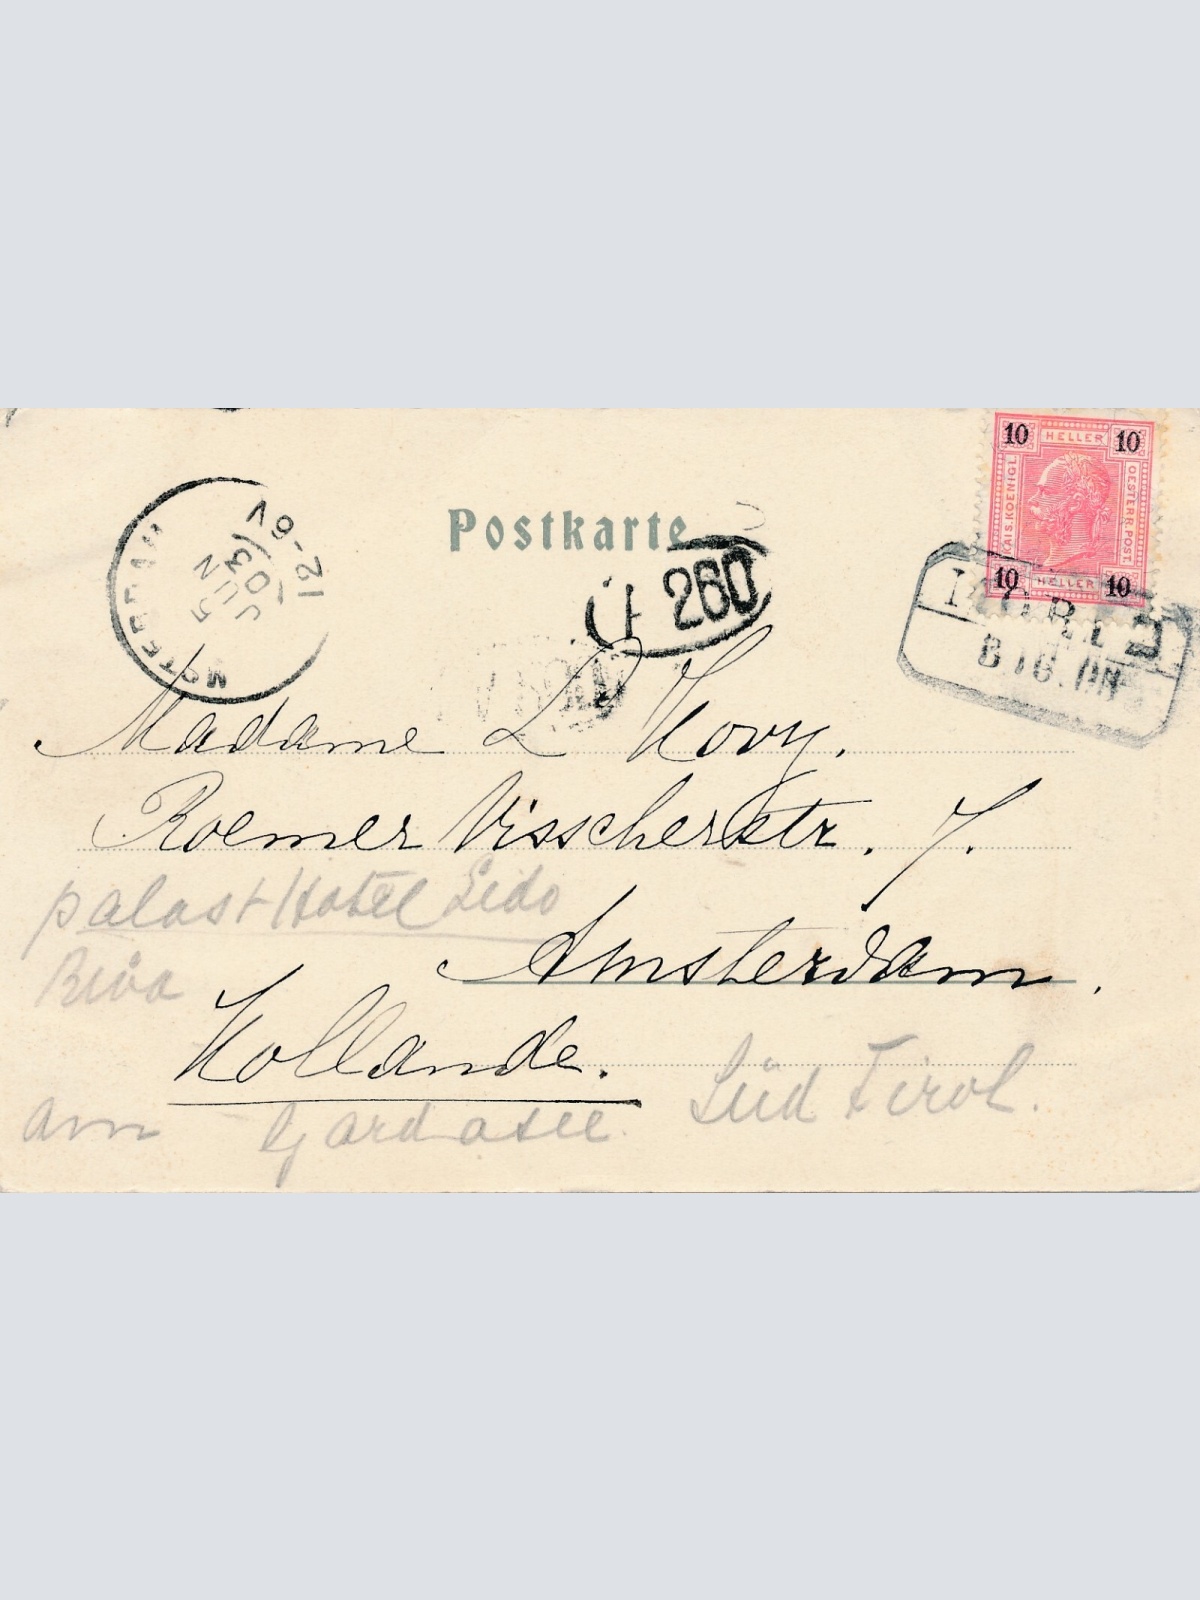 Postkarte
10 HELLER 10
KAIS. KOENIGL. OESTERR. POST.
10 HELLER 10
12-6V
5 JUN 03
260
Madame L Kovy.
Roemer Visscherstr. 7.
Palast Hotel Lido
Amsterdam.
Riva
Hollande.
am Gardasee Süd Tirol.